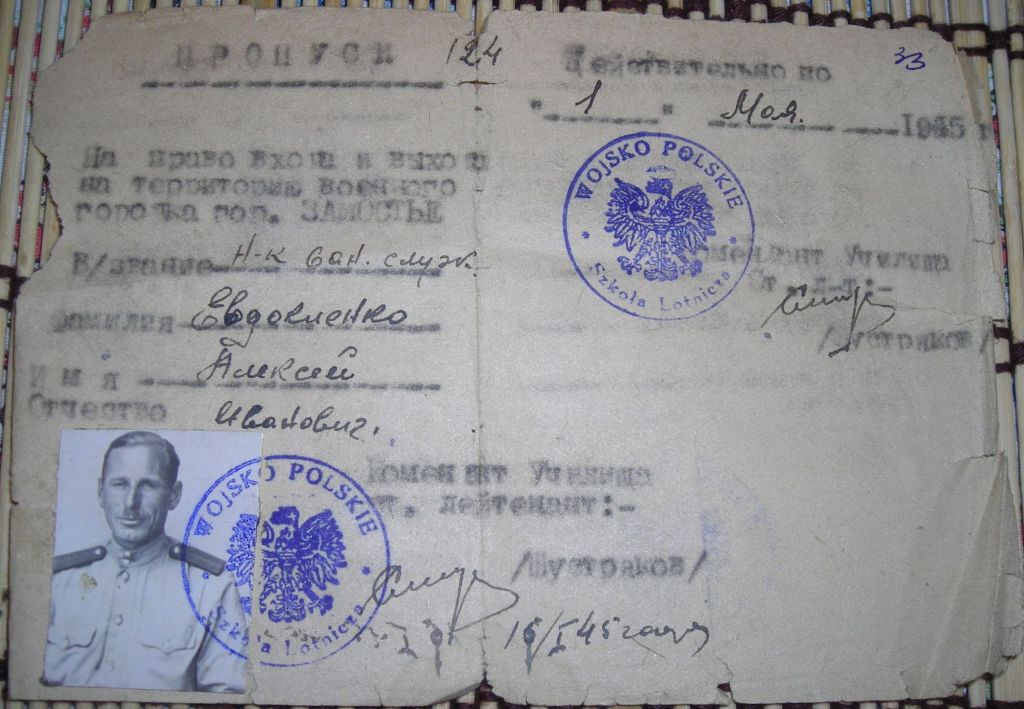 ПРОПУСК 124
На право входа и выхода
на территорию военного
городка гор. ЗАМОСТЬЕ
В/звание Н-к сан. служ.
Фамилия Евдокименко
Имя Алексей
Отчество Иванович.
Комендант Училища
ст. лейтенант:-
/Шустраков/
16/I 45 года
WOJSKO POLSKIE
Szkoła Lotnicza
33
Действительно по
"1" Мая. 1945 г
Комендант Училища
Ст. л-т:-
/Шустраков/
WOJSKO POLSKIE
Szkoła Lotnicza